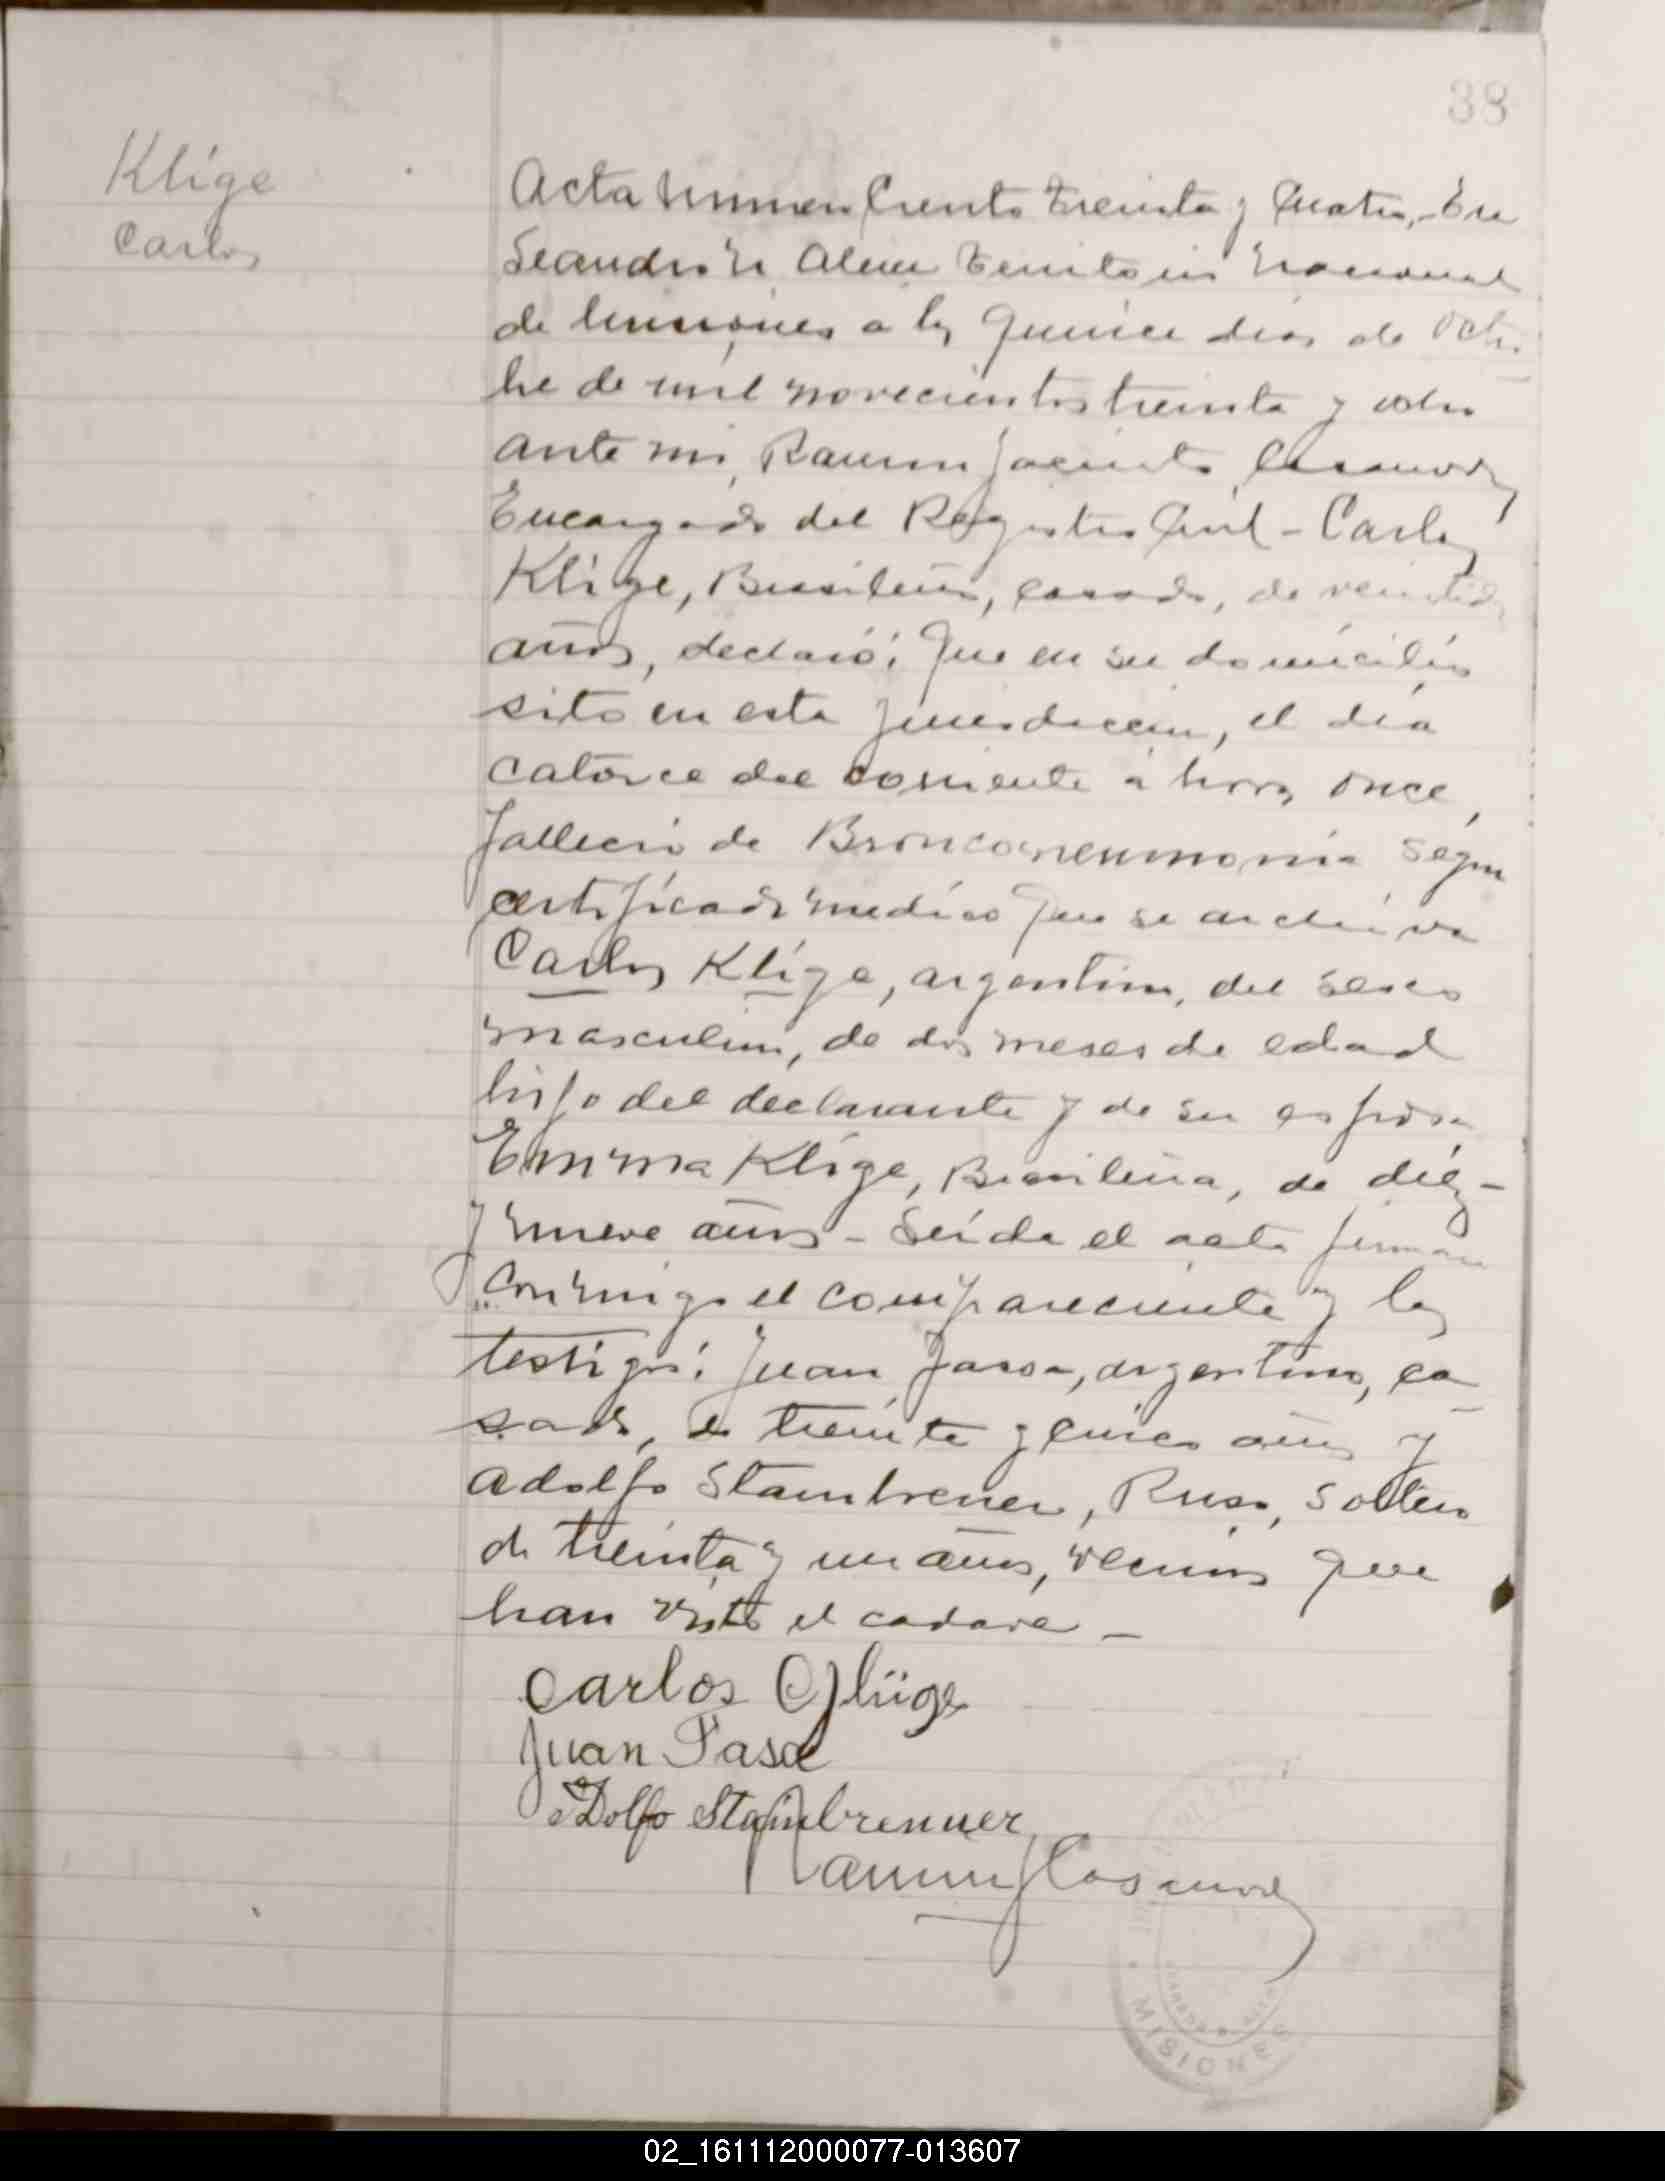 38
Klige
Carlos
Acta número Ciento treinta y Cuatro,- En
Leandro N. Alem Territorio Nacional
de Misiones a los quince dias de Octu
bre de mil novecientos treinta y ocho
ante mi, Ramon Jacinto Casanova,
Encargado del Registro Civil - Carlos
Klige, Brasileño, casado, de veintidos
años, declaró: Que en su domicilio
sito en esta jurisdiccion, el dia
catorce del corriente a horas once,
falleció de Bronconeumonia segun
certificado medico que se archiva
Carlos Klige, argentino, del sexo
masculino, de dos meses de edad
hijo del declarante y de su esposa
Emma Klige, Brasileña, de diez-
y nueve años - Leida el acta firman
conmigo el compareciente y los
testigos: Juan, argentino, ca-
sado, de treinta y cinco años y
Adolfo Stambrener, Ruso, soltero
de treinta y un años, vecinos que
han visto el cadaver -
Carlos Glüge
Juan
Adolfo Steinbrenner
Ramon J Casanova
MISIONES
02_161112000077-013607